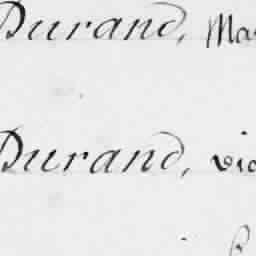 Durand, Ma
Durand, vic